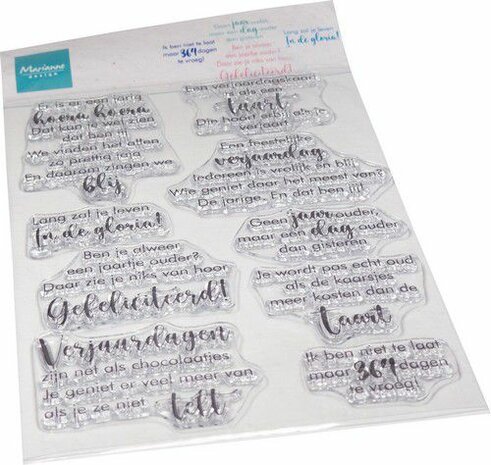 Marianne
design
Ik ben niet te laat
maar 364 dagen
te vroeg!
Geen jaar ouder
maar een dag ouder
dan gisteren
Ben je alweer
een jaartje ouder?
Daar zie je niks van hoor
Gefeliciteerd!
Lang zal je leven
In de gloria!
Er is er een jarig
hoera hoera
Dat kun je wel zien
We vinden het allen
zo prettig ja ja
En daarom zingen we
blij
Lang zal je leven
In de gloria!
Ben je alweer
een jaartje ouder?
Daar zie je niks van hoor
Gefeliciteerd!
Verjaardagen
zijn net als chocolaatjes
Je geniet er veel meer van
als je ze niet telt
Een verjaardagskaart
als een
taart
Die hoort erbij als je
verjaart
Een feestelijke
verjaardag
Iedereen is vrolijk en blij
Wie geniet daar het meest van?
De jarige. En dat ben jij!
Geen jaar ouder,
maar een dag ouder
dan gisteren
Je wordt pas echt oud
als de kaarsjes
meer kosten dan de
taart
Ik ben niet te laat
maar 364 dagen
te vroeg!